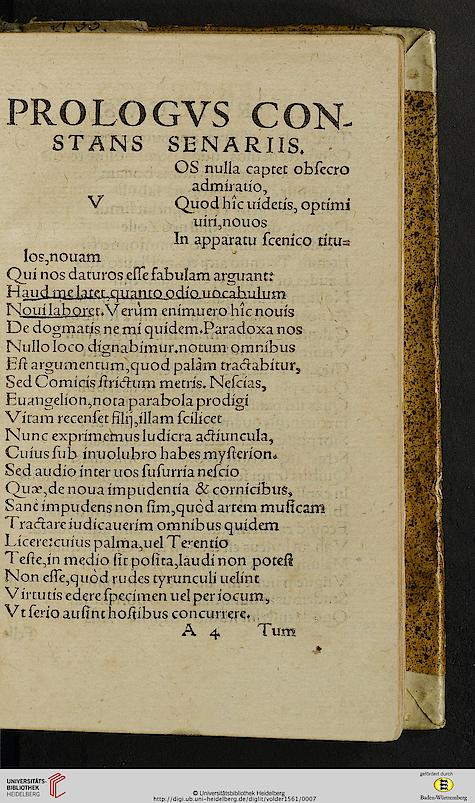 PROLOGVS CON-
STANS SENARIIS.
OS nulla captet obſecro
admiratio,
V
Quod hîc uidetis, optimi
uiri, nouos
In apparatu ſcenico titu=
los, nouam
Qui nos daturos eſſe fabulam arguant:
Haud me latet, quanto odio uocabulum
Noui laboret. Verùm enimuero hîc nouis
De dogmatis ne mi quidem. Paradoxa nos
Nullo loco dignabimur. notum omnibus
Eſt argumentum, quod palàm tractabitur,
Sed Comicis ſtrictum metris. Neſcias,
Euangelion, nota parabola prodigi
Vitam recenſet filij, illam ſcilicet
Nunc exprimemus ludicra actiuncula,
Cuius ſub inuolubro habes myſterion.
Sed audio inter uos ſuſurria neſcio
Quæ, de noua impudentia & cornicibus,
Sanè impudens non ſim, quòd artem muſicam
Tractare iudicauerim omnibus quidem
Licere: cuius palma, uel Terentio
Teſte, in medio ſit poſita, laudi non poteſt
Non eſſe, quòd rudes tyrunculi uelint
Virtutis edere ſpecimen uel per iocum,
Vt ſerio auſint hoſtibus concurrere.
A 4 Tum
UNIVERSITÄTS-
BIBLIOTHEK
HEIDELBERG
© Universitätsbibliothek Heidelberg
http://digi.ub.uni-heidelberg.de/diglit/volder1561/0007
gefördert durch
Baden-Württemberg